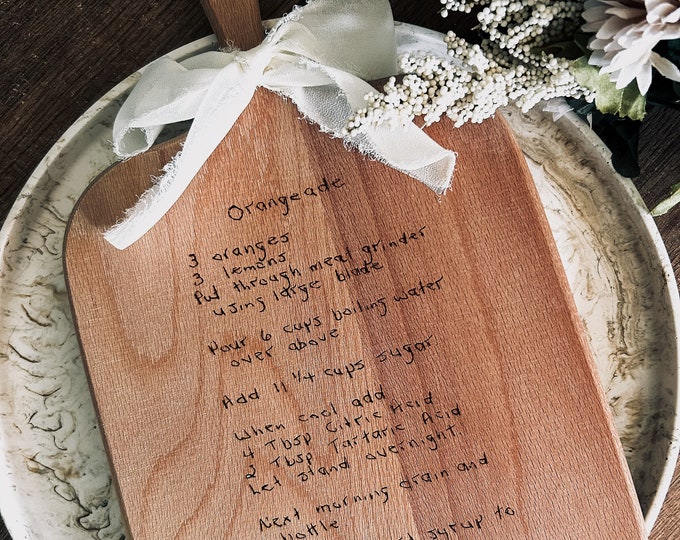 Orangeade
3 oranges
3 lemons
Put through meat grinder
using large blade
Pour 6 cups boiling water
over above
Add 11 1/4 cups sugar
When cool add
4 Tbsp Citric Acid
2 Tbsp Tartaric Acid
Let stand overnight.
Next morning drain and
bottle
syrup to